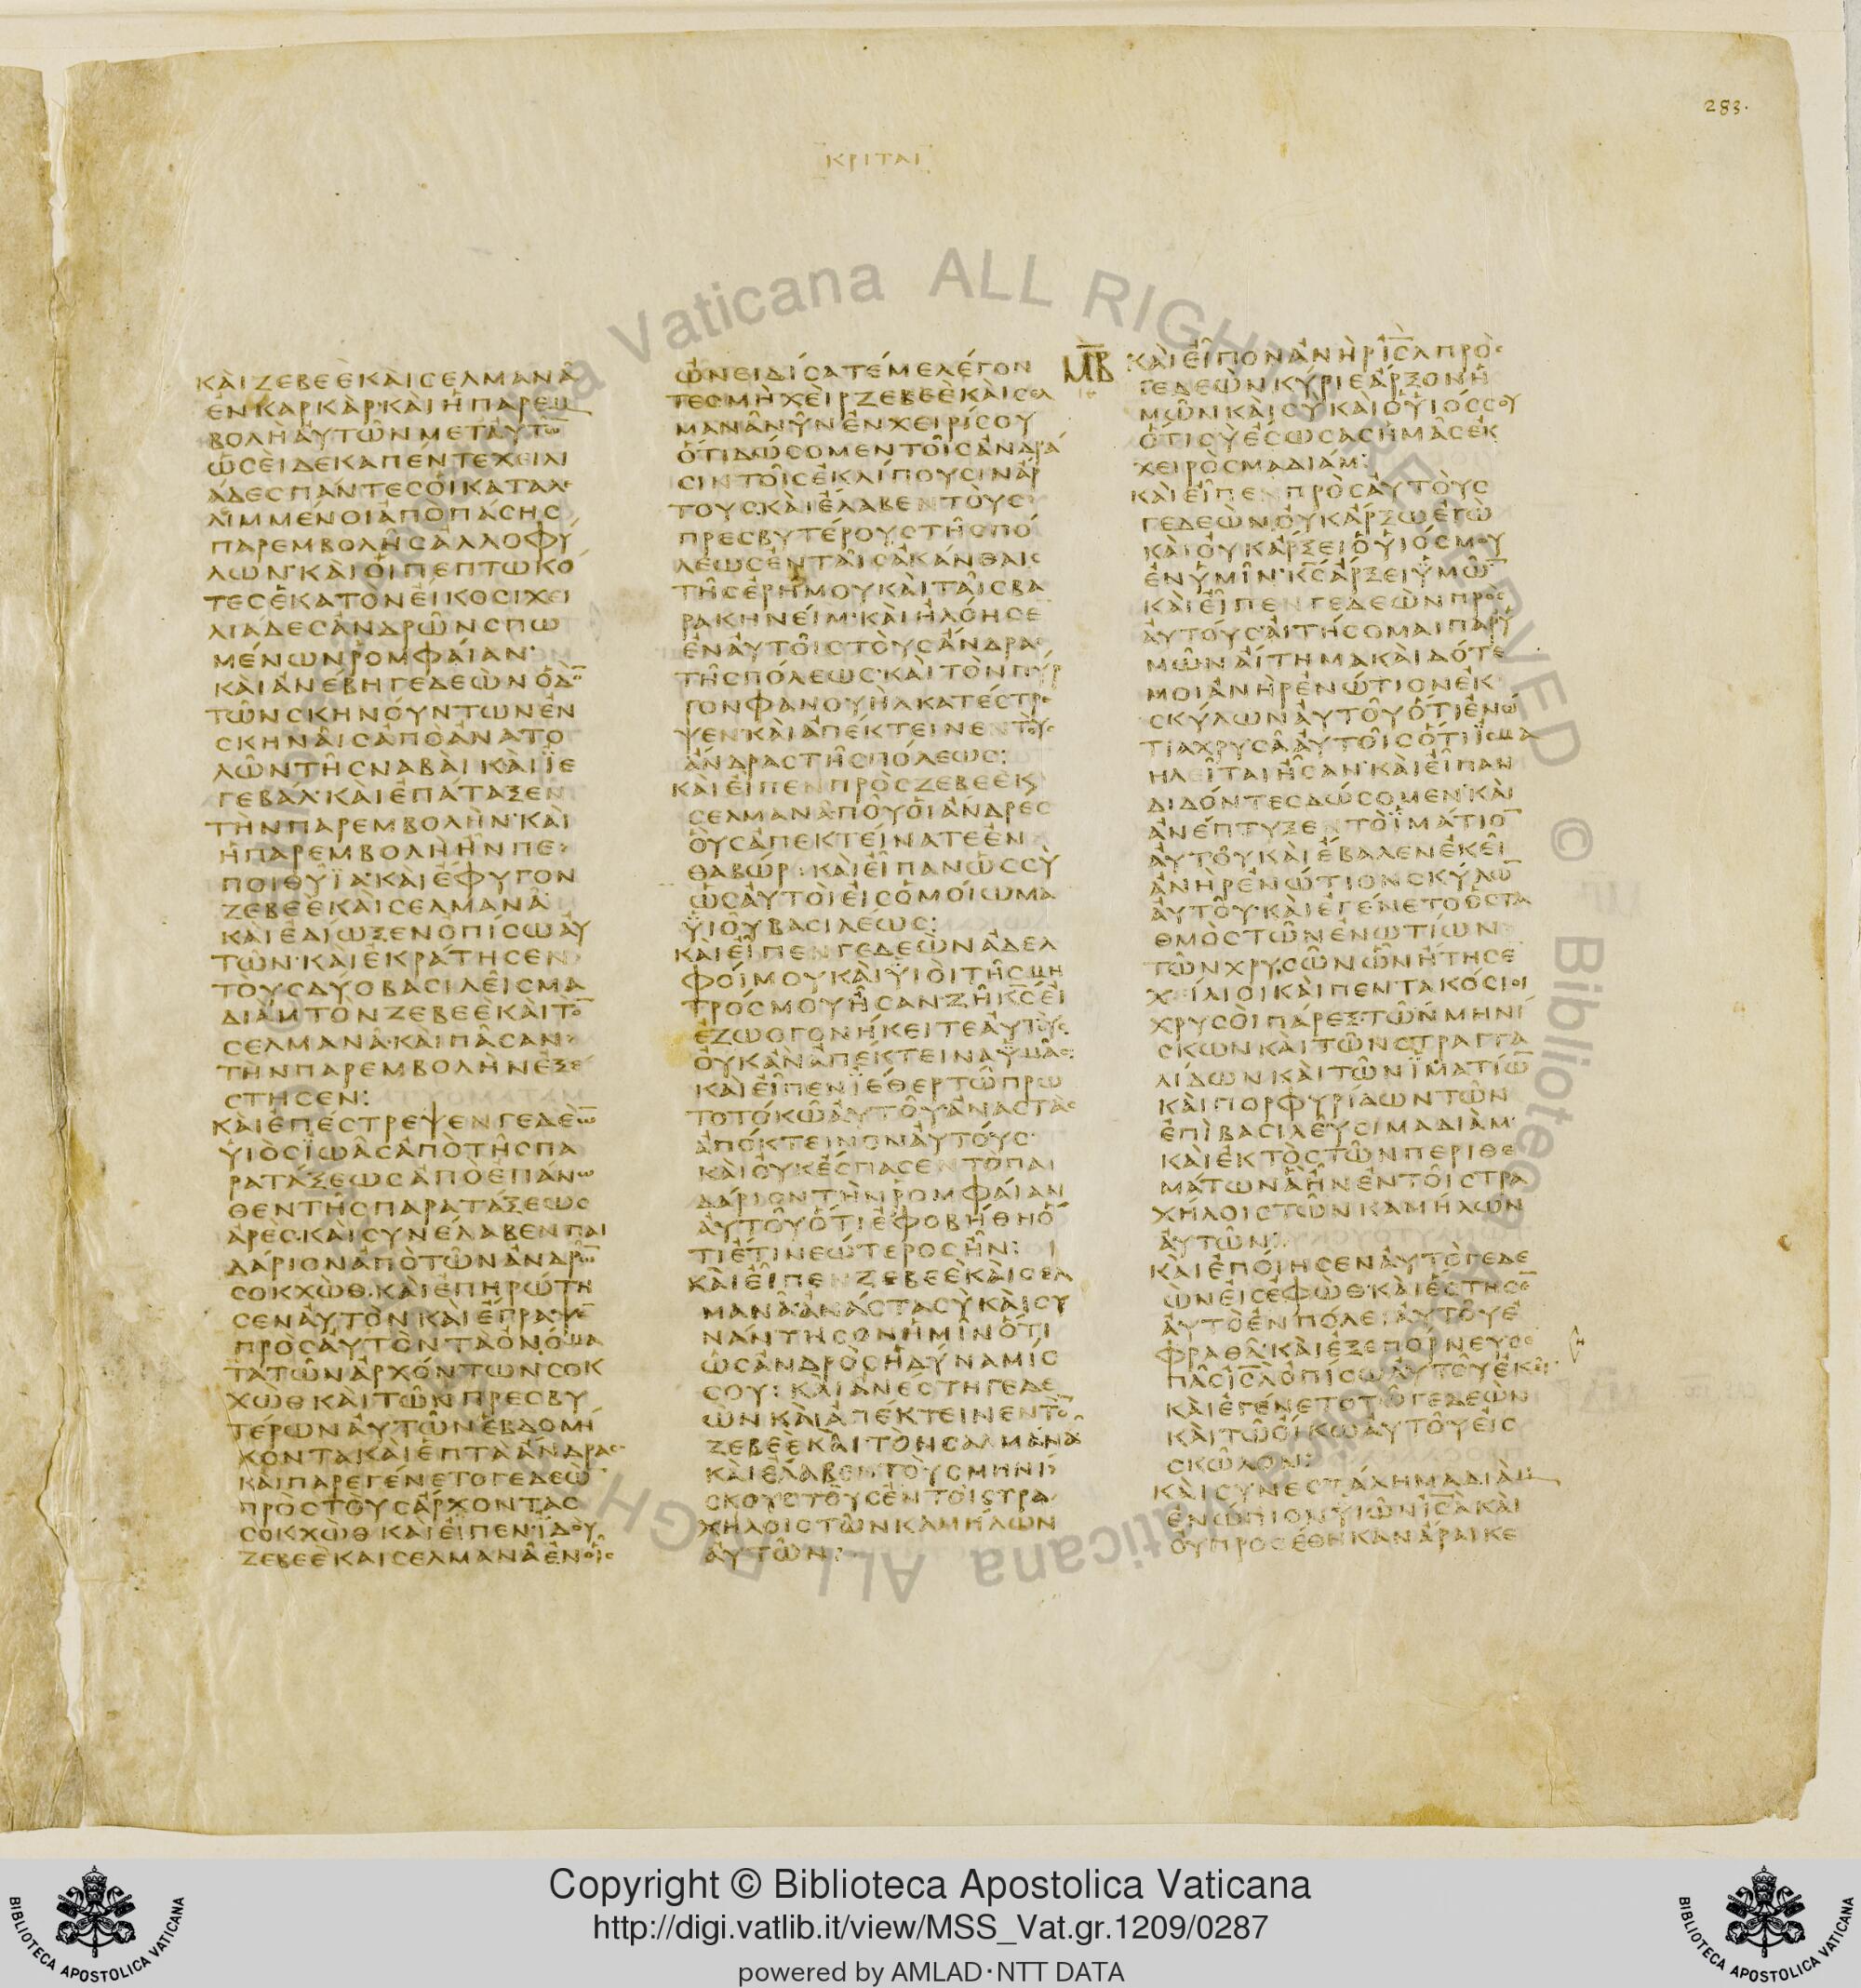 283.
ΚΡΙΤΑΙ
ΚΑΙ ΖΕΒΕΕ ΚΑΙ ΣΕΛΜΑΝΑ
ΕΝ ΚΑΡΚΑΡ· ΚΑΙ Η ΠΑΡΕΜ
ΒΟΛΗ ΑΥΤΩΝ ΜΕΤ ΑΥΤΩ̅
ΩΣΕΙ ΔΕΚΑ ΠΕΝΤΕ ΧΕΙΛΙ
ΑΔΕΣ ΠΑΝΤΕΣ ΟΙ ΚΑΤΑΛΕ
ΛΙΜΜΕΝΟΙ ΑΠΟ ΠΑΣΗΣ
ΠΑΡΕΜΒΟΛΗΣ ΑΛΛΟΦΥ
ΛΩΝ· ΚΑΙ ΟΙ ΠΕΠΤΩΚΟ
ΤΕΣ ΕΚΑΤΟΝ ΕΙΚΟΣΙ ΧΕΙ
ΛΙΑΔΕΣ ΑΝΔΡΩΝ ΣΠΩ
ΜΕΝΩΝ ΡΟΜΦΑΙΑΝ·
ΚΑΙ ΑΝΕΒΗ ΓΕΔΕΩΝ ΟΔΟ̅
ΤΩΝ ΣΚΗΝΟΥΝΤΩΝ ΕΝ
ΣΚΗΝΑΙΣ ΑΠΟ ΑΝΑΤΟ
ΛΩΝ ΤΗΣ ΝΑΒΑΙ ΚΑΙ ΪΕ
ΓΕΒΑΛ· ΚΑΙ ΕΠΑΤΑΞΕΝ
ΤΗΝ ΠΑΡΕΜΒΟΛΗΝ· ΚΑΙ
Η ΠΑΡΕΜΒΟΛΗ ΗΝ ΠΕ
ΠΟΙΘΥΪΑ· ΚΑΙ ΕΦΥΓΟΝ
ΖΕΒΕΕ ΚΑΙ ΣΕΛΜΑΝΑ·
ΚΑΙ ΕΔΙΩΞΕΝ ΟΠΙΣΩ ΑΥ
ΤΩΝ· ΚΑΙ ΕΚΡΑΤΗΣΕΝ
ΤΟΥΣ ΔΥΟ ΒΑΣΙΛΕΙΣ ΜΑ
ΔΙΑΜ ΤΟΝ ΖΕΒΕΕ ΚΑΙ ΤΟ̅
ΣΕΛΜΑΝΑ· ΚΑΙ ΠΑΣΑΝ
ΤΗΝ ΠΑΡΕΜΒΟΛΗΝ ΕΞΕ
ΣΤΗΣΕΝ:
ΚΑΙ ΕΠΕΣΤΡΕΨΕΝ ΓΕΔΕΩ̅
ΥΙΟΣ ΪΩΑΣ ΑΠΟ ΤΗΣ ΠΑ
ΡΑΤΑΞΕΩΣ ΑΠΟ ΕΠΑΝΩ
ΘΕΝ ΤΗΣ ΠΑΡΑΤΑΞΕΩΣ
ΑΡΕΣ· ΚΑΙ ΣΥΝΕΛΑΒΕΝ ΠΑΙ
ΔΑΡΙΟΝ ΑΠΟ ΤΩΝ ΑΝΔΡΩ̅
ΣΟΚΧΩΘ· ΚΑΙ ΕΠΗΡΩΤΗ
ΣΕΝ ΑΥΤΟΝ ΚΑΙ ΕΓΡΑΨΕ̅
ΠΡΟΣ ΑΥΤΟΝ ΤΑ ΟΝΟΜΑ
ΤΑ ΤΩΝ ΑΡΧΟΝΤΩΝ ΣΟΚ
ΧΩΘ ΚΑΙ ΤΩΝ ΠΡΕΣΒΥ
ΤΕΡΩΝ ΑΥΤΩΝ ΕΒΔΟΜΗ
ΚΟΝΤΑ ΚΑΙ ΕΠΤΑ ΑΝΔΡΑΣ
ΚΑΙ ΠΑΡΕΓΕΝΕΤΟ ΓΕΔΕΩ̅
ΠΡΟΣ ΤΟΥΣ ΑΡΧΟΝΤΑΣ
ΣΟΚΧΩΘ ΚΑΙ ΕΙΠΕΝ ΪΔΟΥ
ΖΕΒΕΕ ΚΑΙ ΣΕΛΜΑΝΑ ΕΝ ΟΙΣ
ΩΝΕΙΔΙΣΑΤΕ ΜΕ ΛΕΓΟΝ
ΤΕΣ ΜΗ ΧΕΙΡ ΖΕΒΕΕ ΚΑΙ ΣΕΛ
ΜΑΝΑ ΝΥΝ ΕΝ ΧΕΙΡΙ ΣΟΥ
ΟΤΙ ΔΩΣΟΜΕΝ ΤΟΙΣ ΑΝΔΡΑ
ΣΙΝ ΤΟΙΣ ΕΚΛΙΠΟΥΣΙΝ ΑΡ
ΤΟΥΣ· ΚΑΙ ΕΛΑΒΕΝ ΤΟΥΣ
ΠΡΕΣΒΥΤΕΡΟΥΣ ΤΗΣ ΠΟ
ΛΕΩΣ ΕΝ ΤΑΙΣ ΑΚΑΝΘΑΙΣ
ΤΗΣ ΕΡΗΜΟΥ ΚΑΙ ΤΑΙΣ ΒΑ
ΡΑΚΗΝΕΙΜ· ΚΑΙ ΗΛΟΗΣΕ
ΕΝ ΑΥΤΟΙΣ ΤΟΥΣ ΑΝΔΡΑΣ
ΤΗΣ ΠΟΛΕΩΣ· ΚΑΙ ΤΟΝ ΠΥΡ
ΓΟΝ ΦΑΝΟΥΗΛ ΚΑΤΕΣΤΡΕ
ΨΕΝ· ΚΑΙ ΑΠΕΚΤΕΙΝΕΝ ΤΟΥΣ
ΑΝΔΡΑΣ ΤΗΣ ΠΟΛΕΩΣ:
ΚΑΙ ΕΙΠΕΝ ΠΡΟΣ ΖΕΒΕΕ Κ
ΣΕΛΜΑΝΑ· ΠΟΥ ΟΙ ΑΝΔΡΕΣ
ΟΥΣ ΑΠΕΚΤΕΙΝΑΤΕ ΕΝ
ΘΑΒΩΡ: ΚΑΙ ΕΙΠΑΝ ΩΣ ΣΥ
ΩΣ ΑΥΤΟΙ ΕΙΣ ΟΜΟΙΩΜΑ
ΥΙΟΥ ΒΑΣΙΛΕΩΣ:
ΚΑΙ ΕΙΠΕΝ ΓΕΔΕΩΝ ΑΔΕΛ
ΦΟΙ ΜΟΥ ΚΑΙ ΥΙΟΙ ΤΗΣ ΜΗ
ΤΡΟΣ ΜΟΥ ΗΣΑΝ· ΖΗ Κ̅Σ̅ ΕΙ
ΕΖΩΟΓΟΝΗΚΕΙΤΕ ΑΥΤΟΥΣ
ΟΥΚ ΑΝ ΑΠΕΚΤΕΙΝΑ ΥΜΑΣ:
ΚΑΙ ΕΙΠΕΝ ΪΕΘΕΡ ΤΩ ΠΡΩ
ΤΟΤΟΚΩ ΑΥΤΟΥ· ΑΝΑΣΤΑΣ
ΑΠΟΚΤΕΙΝΟΝ ΑΥΤΟΥΣ·
ΚΑΙ ΟΥΚ ΕΣΠΑΣΕΝ ΤΟ ΠΑΙ
ΔΑΡΙΟΝ ΤΗΝ ΡΟΜΦΑΙΑΝ
ΑΥΤΟΥ ΟΤΙ ΕΦΟΒΗΘΗ Ο
ΤΙ ΕΤΙ ΝΕΩΤΕΡΟΣ ΗΝ:
ΚΑΙ ΕΙΠΕΝ ΖΕΒΕΕ ΚΑΙ ΣΕΛ
ΜΑΝΑ· ΑΝΑΣΤΑ ΣΥ ΚΑΙ ΣΥ
ΝΑΝΤΗΣΟΝ ΗΜΙΝ ΟΤΙ
ΩΣ ΑΝΔΡΟΣ Η ΔΥΝΑΜΙΣ
ΣΟΥ: ΚΑΙ ΑΝΕΣΤΗ ΓΕΔΕ
ΩΝ ΚΑΙ ΑΠΕΚΤΕΙΝΕΝ ΤΟ̅
ΖΕΒΕΕ ΚΑΙ ΤΟΝ ΣΑΛΜΑΝΑ
ΚΑΙ ΕΛΑΒΕΝ ΤΟΥΣ ΜΗΝΙ
ΣΚΟΥΣ ΤΟΥΣ ΕΝ ΤΟΙΣ ΤΡΑ
ΧΗΛΟΙΣ ΤΩΝ ΚΑΜΗΛΩΝ
ΑΥΤΩΝ:
Μ̅Β̅
ΚΑΙ ΕΙΠΟΝ ΑΝΗΡ Ι̅Σ̅Λ ΠΡΟΣ
ΓΕΔΕΩΝ ΚΥΡΙΕ ΑΡΞΟΝ Η
ΜΩΝ ΚΑΙ ΣΥ ΚΑΙ Ο ΥΙΟΣ ΣΟΥ
ΟΤΙ ΣΥ ΕΣΩΣΑΣ ΗΜΑΣ ΕΚ
ΧΕΙΡΟΣ ΜΑΔΙΑΜ:
ΚΑΙ ΕΙΠΕΝ ΠΡΟΣ ΑΥΤΟΥΣ
ΓΕΔΕΩΝ· ΟΥΚ ΑΡΞΩ ΕΓΩ
ΚΑΙ ΟΥΚ ΑΡΞΕΙ Ο ΥΙΟΣ ΜΟΥ
ΕΝ ΥΜΙΝ· Κ̅Σ̅ ΑΡΞΕΙ ΥΜΩ̅
ΚΑΙ ΕΙΠΕΝ ΓΕΔΕΩΝ ΠΡΟΣ
ΑΥΤΟΥΣ· ΑΙΤΗΣΟΜΑΙ ΠΑΡ Υ
ΜΩΝ ΑΙΤΗΜΑ ΚΑΙ ΔΟΤΕ
ΜΟΙ ΑΝΗΡ ΕΝΩΤΙΟΝ ΕΚ
ΣΚΥΛΩΝ ΑΥΤΟΥ ΟΤΙ ΕΝΩ
ΤΙΑ ΧΡΥΣΑ ΑΥΤΟΙΣ ΟΤΙ ΪΣΜΑ
ΗΛΕΙΤΑΙ ΗΣΑΝ· ΚΑΙ ΕΙΠΑΝ
ΔΙΔΟΝΤΕΣ ΔΩΣΟΜΕΝ· ΚΑΙ
ΑΝΕΠΤΥΞΕΝ ΤΟ ΪΜΑΤΙΟ̅
ΑΥΤΟΥ ΚΑΙ ΕΒΑΛΕΝ ΕΚΕΙ
ΑΝΗΡ ΕΝΩΤΙΟΝ ΣΚΥΛΩ̅
ΑΥΤΟΥ· ΚΑΙ ΕΓΕΝΕΤΟ Ο ΣΤΑ
ΘΜΟΣ ΤΩΝ ΕΝΩΤΙΩΝ
ΤΩΝ ΧΡΥΣΩΝ ΩΝ ΗΤΗΣΕ
ΧΕΙΛΙΟΙ ΚΑΙ ΠΕΝΤΑΚΟΣΙΟΙ
ΧΡΥΣΟΙ ΠΑΡΕΞ ΤΩΝ ΜΗΝΙ
ΣΚΩΝ ΚΑΙ ΤΩΝ ΣΤΡΑΓΓΑ
ΛΙΔΩΝ ΚΑΙ ΤΩΝ ΪΜΑΤΙΩ̅
ΚΑΙ ΠΟΡΦΥΡΙΔΩΝ ΤΩΝ
ΕΠΙ ΒΑΣΙΛΕΥΣΙ ΜΑΔΙΑΜ·
ΚΑΙ ΕΚΤΟΣ ΤΩΝ ΠΕΡΙΘΕ
ΜΑΤΩΝ Α ΗΝ ΕΝ ΤΟΙΣ ΤΡΑ
ΧΗΛΟΙΣ ΤΩΝ ΚΑΜΗΛΩΝ
ΑΥΤΩΝ:
ΚΑΙ ΕΠΟΙΗΣΕΝ ΑΥΤΟ ΓΕΔΕ
ΩΝ ΕΙΣ ΕΦΩΘ· ΚΑΙ ΕΣΤΗΣΕ̅
ΑΥΤΟ ΕΝ ΠΟΛΕΙ ΑΥΤΟΥ Ε
ΦΡΑΘΑ· ΚΑΙ ΕΞΕΠΟΡΝΕΥΣΕ
ΠΑΣ Ι̅Σ̅Λ ΟΠΙΣΩ ΑΥΤΟΥ ΕΚΕΙ·
ΚΑΙ ΕΓΕΝΕΤΟ ΤΩ ΓΕΔΕΩΝ
ΚΑΙ ΤΩ ΟΙΚΩ ΑΥΤΟΥ ΕΙΣ
ΣΚΩΛΟΝ:
ΚΑΙ ΣΥΝΕΣΤΑΛΗ ΜΑΔΙΑΜ
ΕΝΩΠΙΟΝ ΥΙΩΝ Ι̅Σ̅Λ ΚΑΙ
ΟΥ ΠΡΟΣΕΘΗΚΑΝ ΑΡΑΙ ΚΕ
Copyright © Biblioteca Apostolica Vaticana
http://digi.vatlib.it/view/MSS_Vat.gr.1209/0287
powered by AMLAD·NTT DATA
BIBLIOTECA APOSTOLICA VATICANA
BIBLIOTECA APOSTOLICA VATICANA